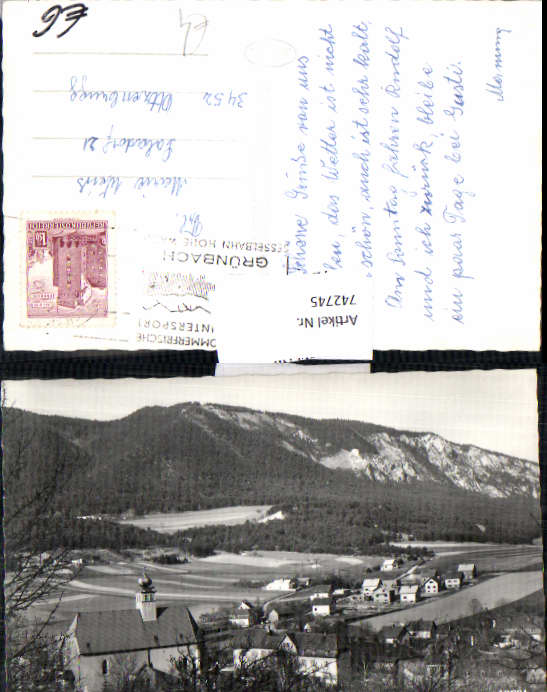 €6
Schöne Grüße von uns
das Wetter ist nicht
schön, auch ist sehr kalt.
Am Sonntag fahren Rudolf
und ich zurück, bleibe
ein paar Tage bei Gusti.
Maria Weiss
21
3452
REPUBLIK ÖSTERREICH
SOMMERFRISCHE
WINTERSPORT
GRÜNBACH
SESSELBAHN HOHE WA
Artikel Nr.
742745